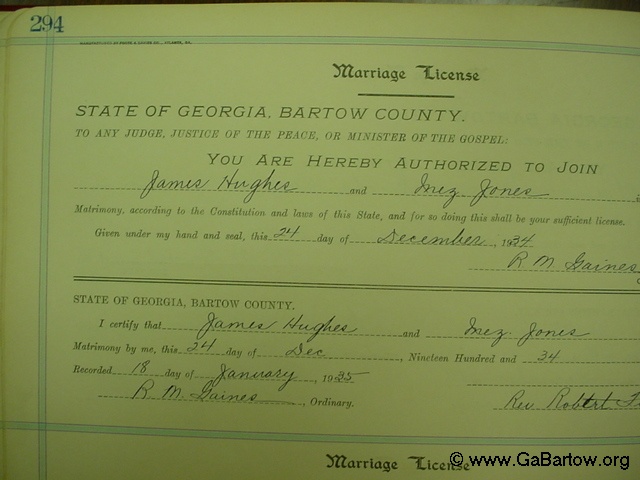 294
Marriage License
STATE OF GEORGIA, BARTOW COUNTY.
TO ANY JUDGE, JUSTICE OF THE PEACE, OR MINISTER OF THE GOSPEL:
YOU ARE HEREBY AUTHORIZED TO JOIN
James Hughes and Inez Jones
Matrimony, according to the Constitution and laws of this State, and for so doing this shall be your sufficient license.
Given under my hand and seal, this 24 day of December, 1934
R M Gaines
STATE OF GEORGIA, BARTOW COUNTY.
I certify that James Hughes and Inez Jones
Matrimony by me, this 24 day of Dec, Nineteen Hundred and 34
Recorded 18 day of January, 1935
R. M. Gaines, Ordinary.
Rev Robert
Marriage License
© www.GaBartow.org